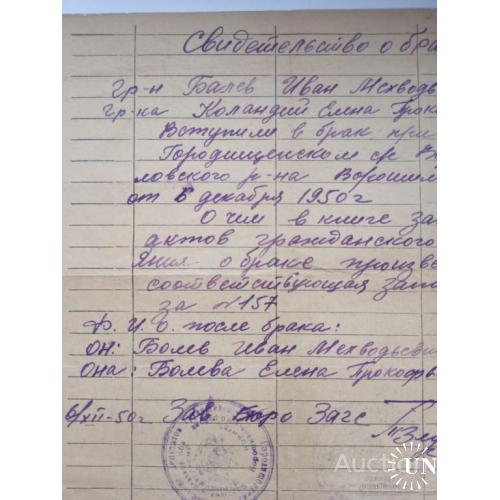 Свидетельство о бра
гр-н Балев Иван Мехводь
гр-ка Коландий Елена Проко
Вступили в брак при
Городищенском с/с
ловского р-на Ворошил
от 6 декабря 1950г
О чем в книге за
актов гражданского
яния о браке произве
соответствующая запи
за №157
Ф. И. О. после брака:
он: Болев Иван Мехводьевич
Она: Болева Елена Прокофь
6/XII-50г Зав Бюро Загс
UN